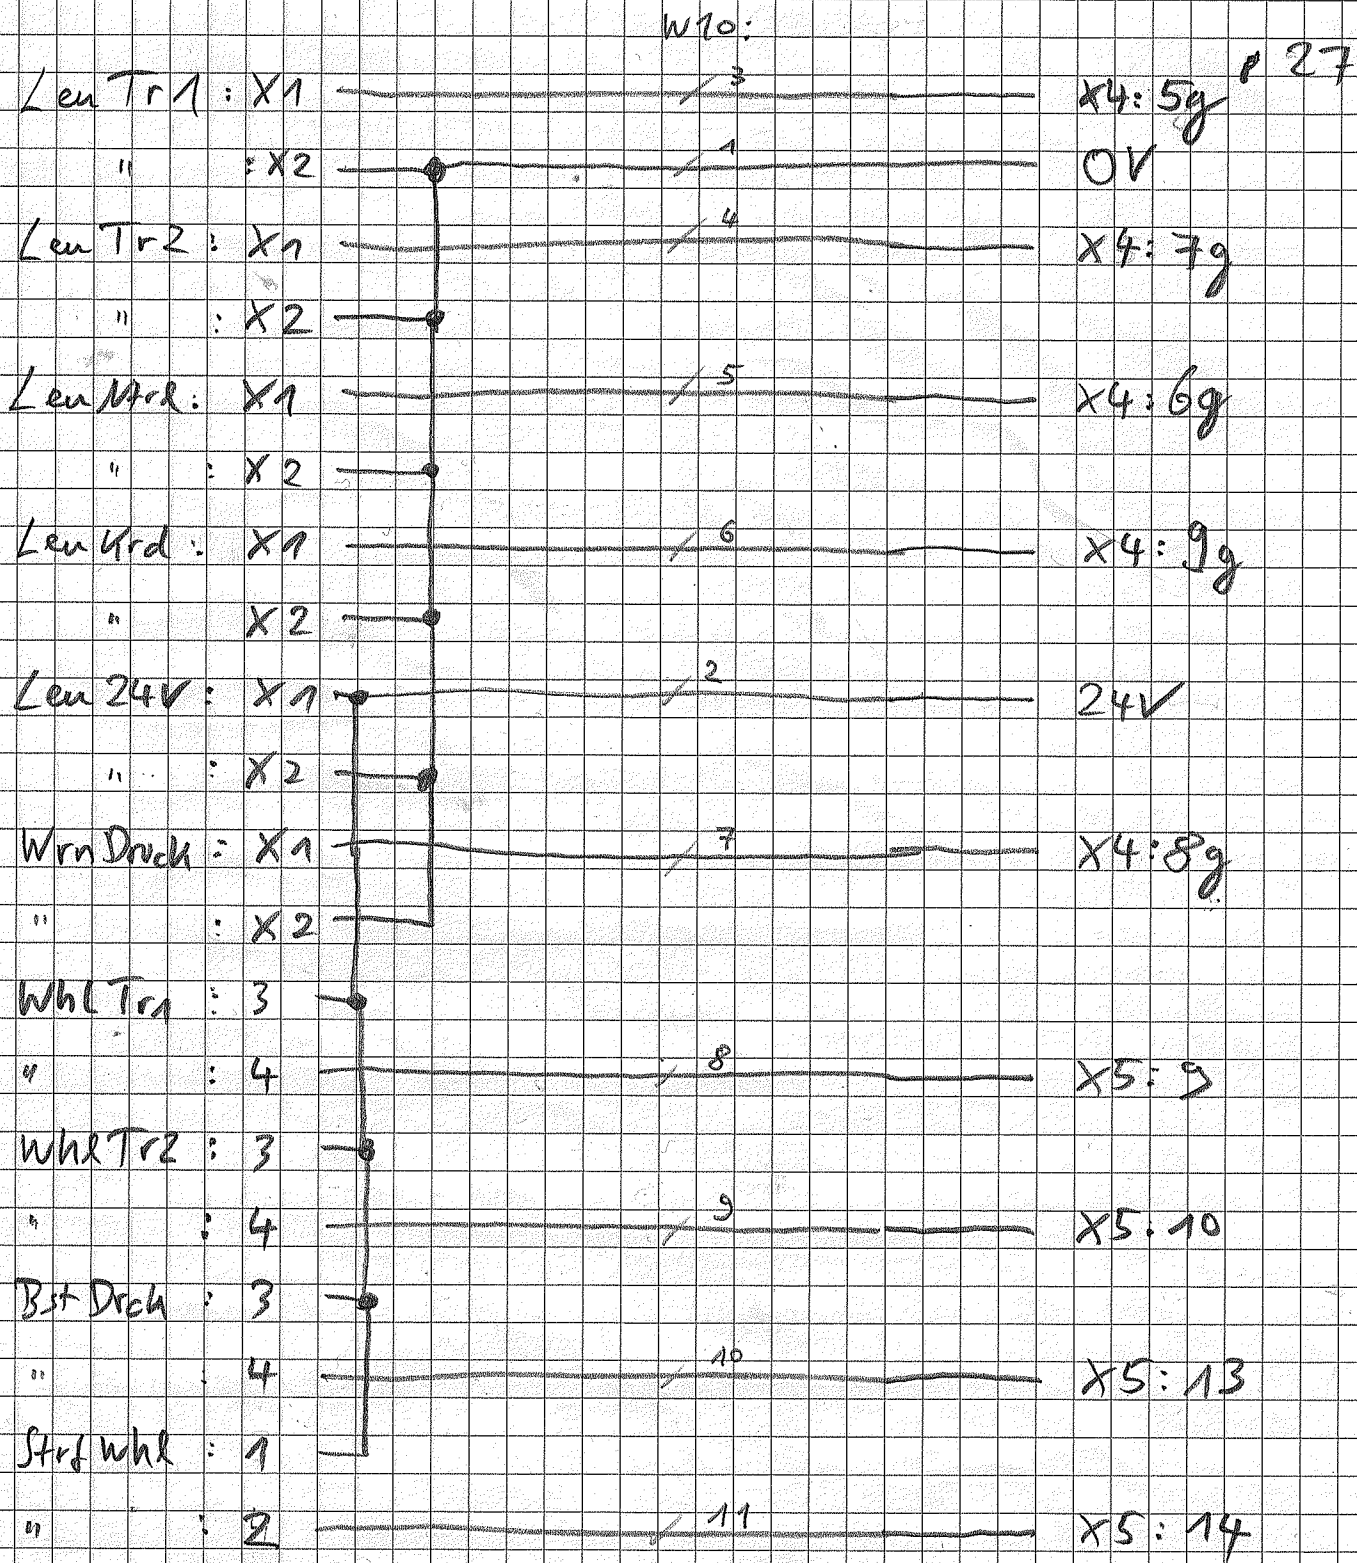 W10:
27
Leu Tr1 : X1 3 X4: 5g
" : X2 1 0V
Leu Tr2 : X1 4 X4: 7g
" : X2
Leu : X1 5 X4: 6g
" : X2
Leu Krd : X1 6 X4: 9g
" X2
Leu 24V : X1 2 24V
" : X2
WrnDruck : X1 7 X4: 8g
" : X2
Whl Tr1 : 3
" : 4 8 X5: 9
Whl Tr2 : 3
" : 4 9 X5: 10
Bst Drck : 3
" : 4 10 X5: 13
Strf Whl : 1
" : 2 11 X5: 14